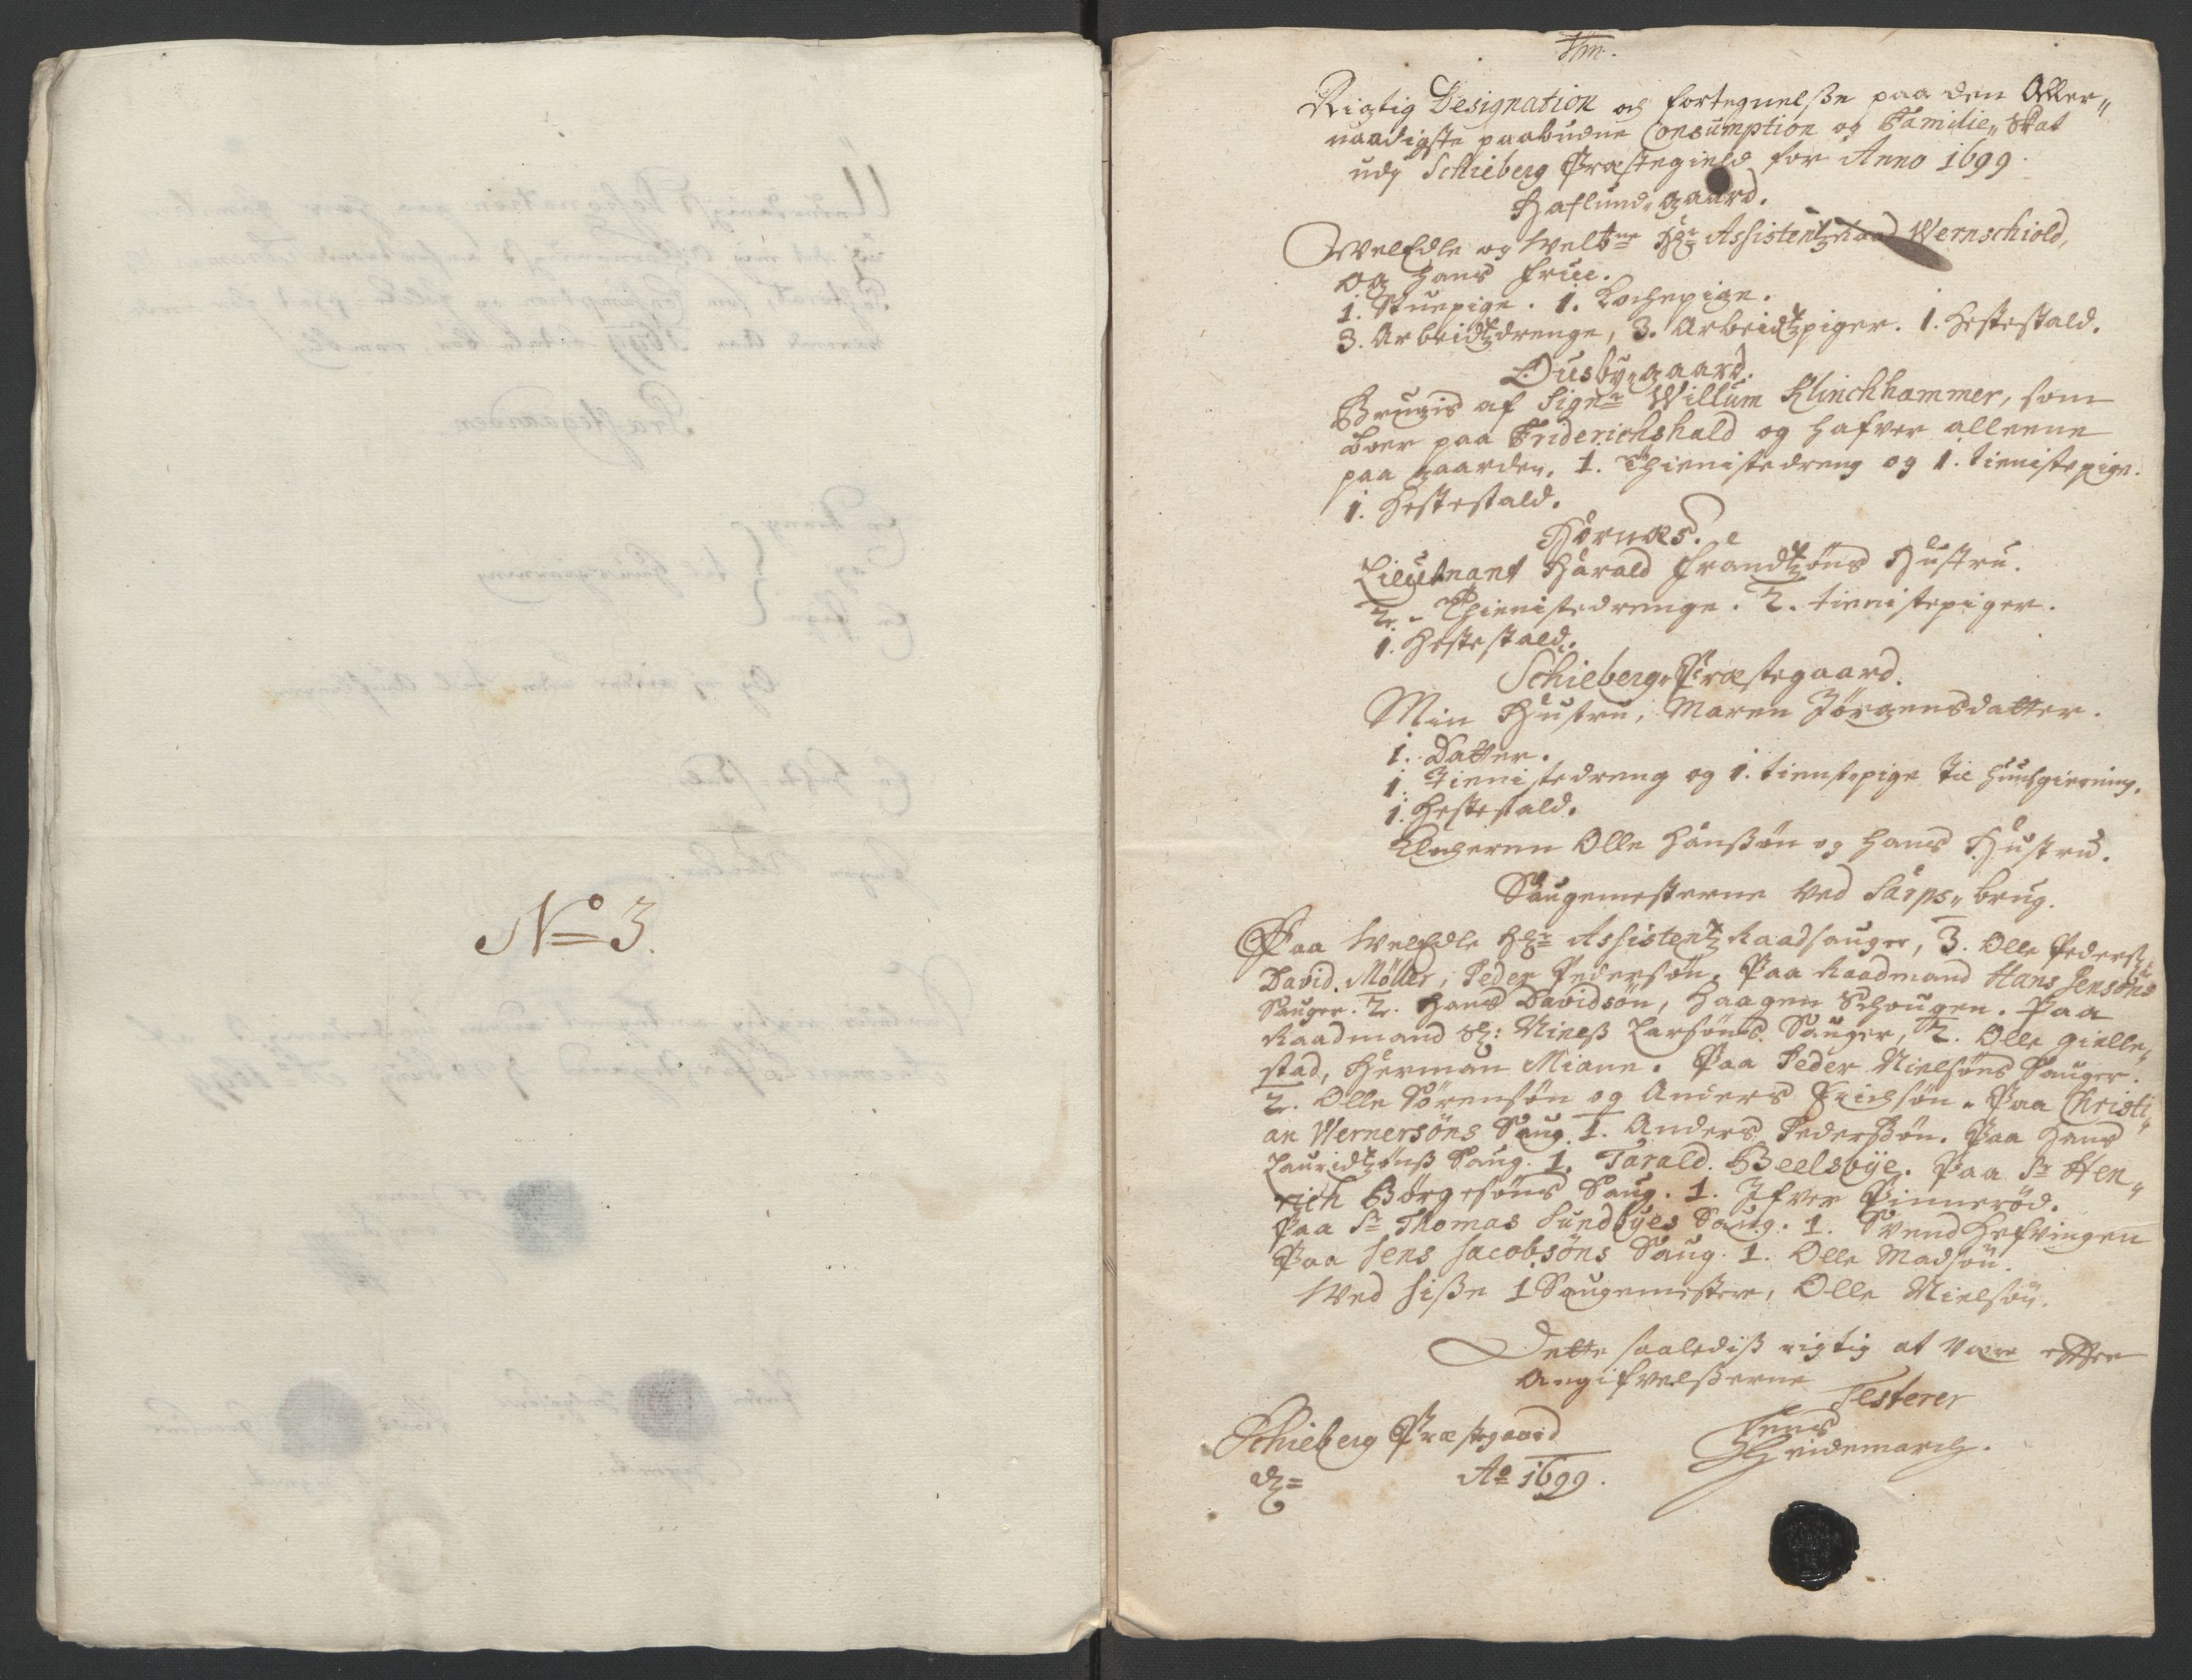 No 3.
Rigtig Designation og fortegnelße paa den Aller„
naadigste paabudne Consumption og Familie„ Skat
udj Schieberg Præstegield for Anno 1699.
Haflund„gaard.
WelEdle og Welbne Hr Assistentz Raad Wernschiold,
og hans frue.
1. Stuepige. 1. Kochepige.
3. Arbeidtzdrenge, 3. Arbeidtzpiger. 1. Hestestald.
Ousby„gaard.
Brugis af Signr Willum Klinckhammer, som
boer paa Friderichshald og hafver alleene
paa gaarden. 1. Thienistedreng og 1. tienistepige.
1. Hestestald.
Hornæs.
Lieutnant Harald frandtzøns Hustru.
2. Thienistedrenge. 2. tienistepiger.
1. Hestestald.
Schieberg„Præstegaard.
Min Hustru, Maren Jörgensdatter.
1. Datter.
1. Tienistedreng og 1. tienstepige til huusgierning.
1. Hestestald.
Klocheren Olle Hanßøn og hans Hustru.
Saugemesterne ved Sarps„brug.
Paa WelEdle Hr Assistentz Raads sauger, 3. Olle Peders:
David Møller, Peder Pedersøn. Paa Raadmand Hans Jensøns
Sauger. 2. Hans Davidsøn, Haagen Schougen. Paa
Raadmand Sl: Nielß Larsøns Sauger, 2. Olle Gielle„
stad, Herman Miane. Paa Peder Nielsøns Sauger.
2. Olle Sørensøn og Anders Erichsøn. Paa Christi„
an Wernersøns Saug 1. Anders Pederßøn. Paa Hans
Lauridtzønß Saug. 1. Tarald Beelsbye. Paa Sr Hen„
rich Börgesøns Saug. 1. Ifver Pinnerød.
Paa Sr Thomas Sundbyes Saug. 1. Svend Hefvingen
Paa Jens Jacobsøns Saug. 1. Olle Madsøn.
Ved Hiße 1 Saugemestere, Olle Nielsøn.
Dette saalediß rigtig at være effter
Angifvelßerne
Testerer
Schieberg Præstegaard
Jens
Heidemarch.
Ao 1699.